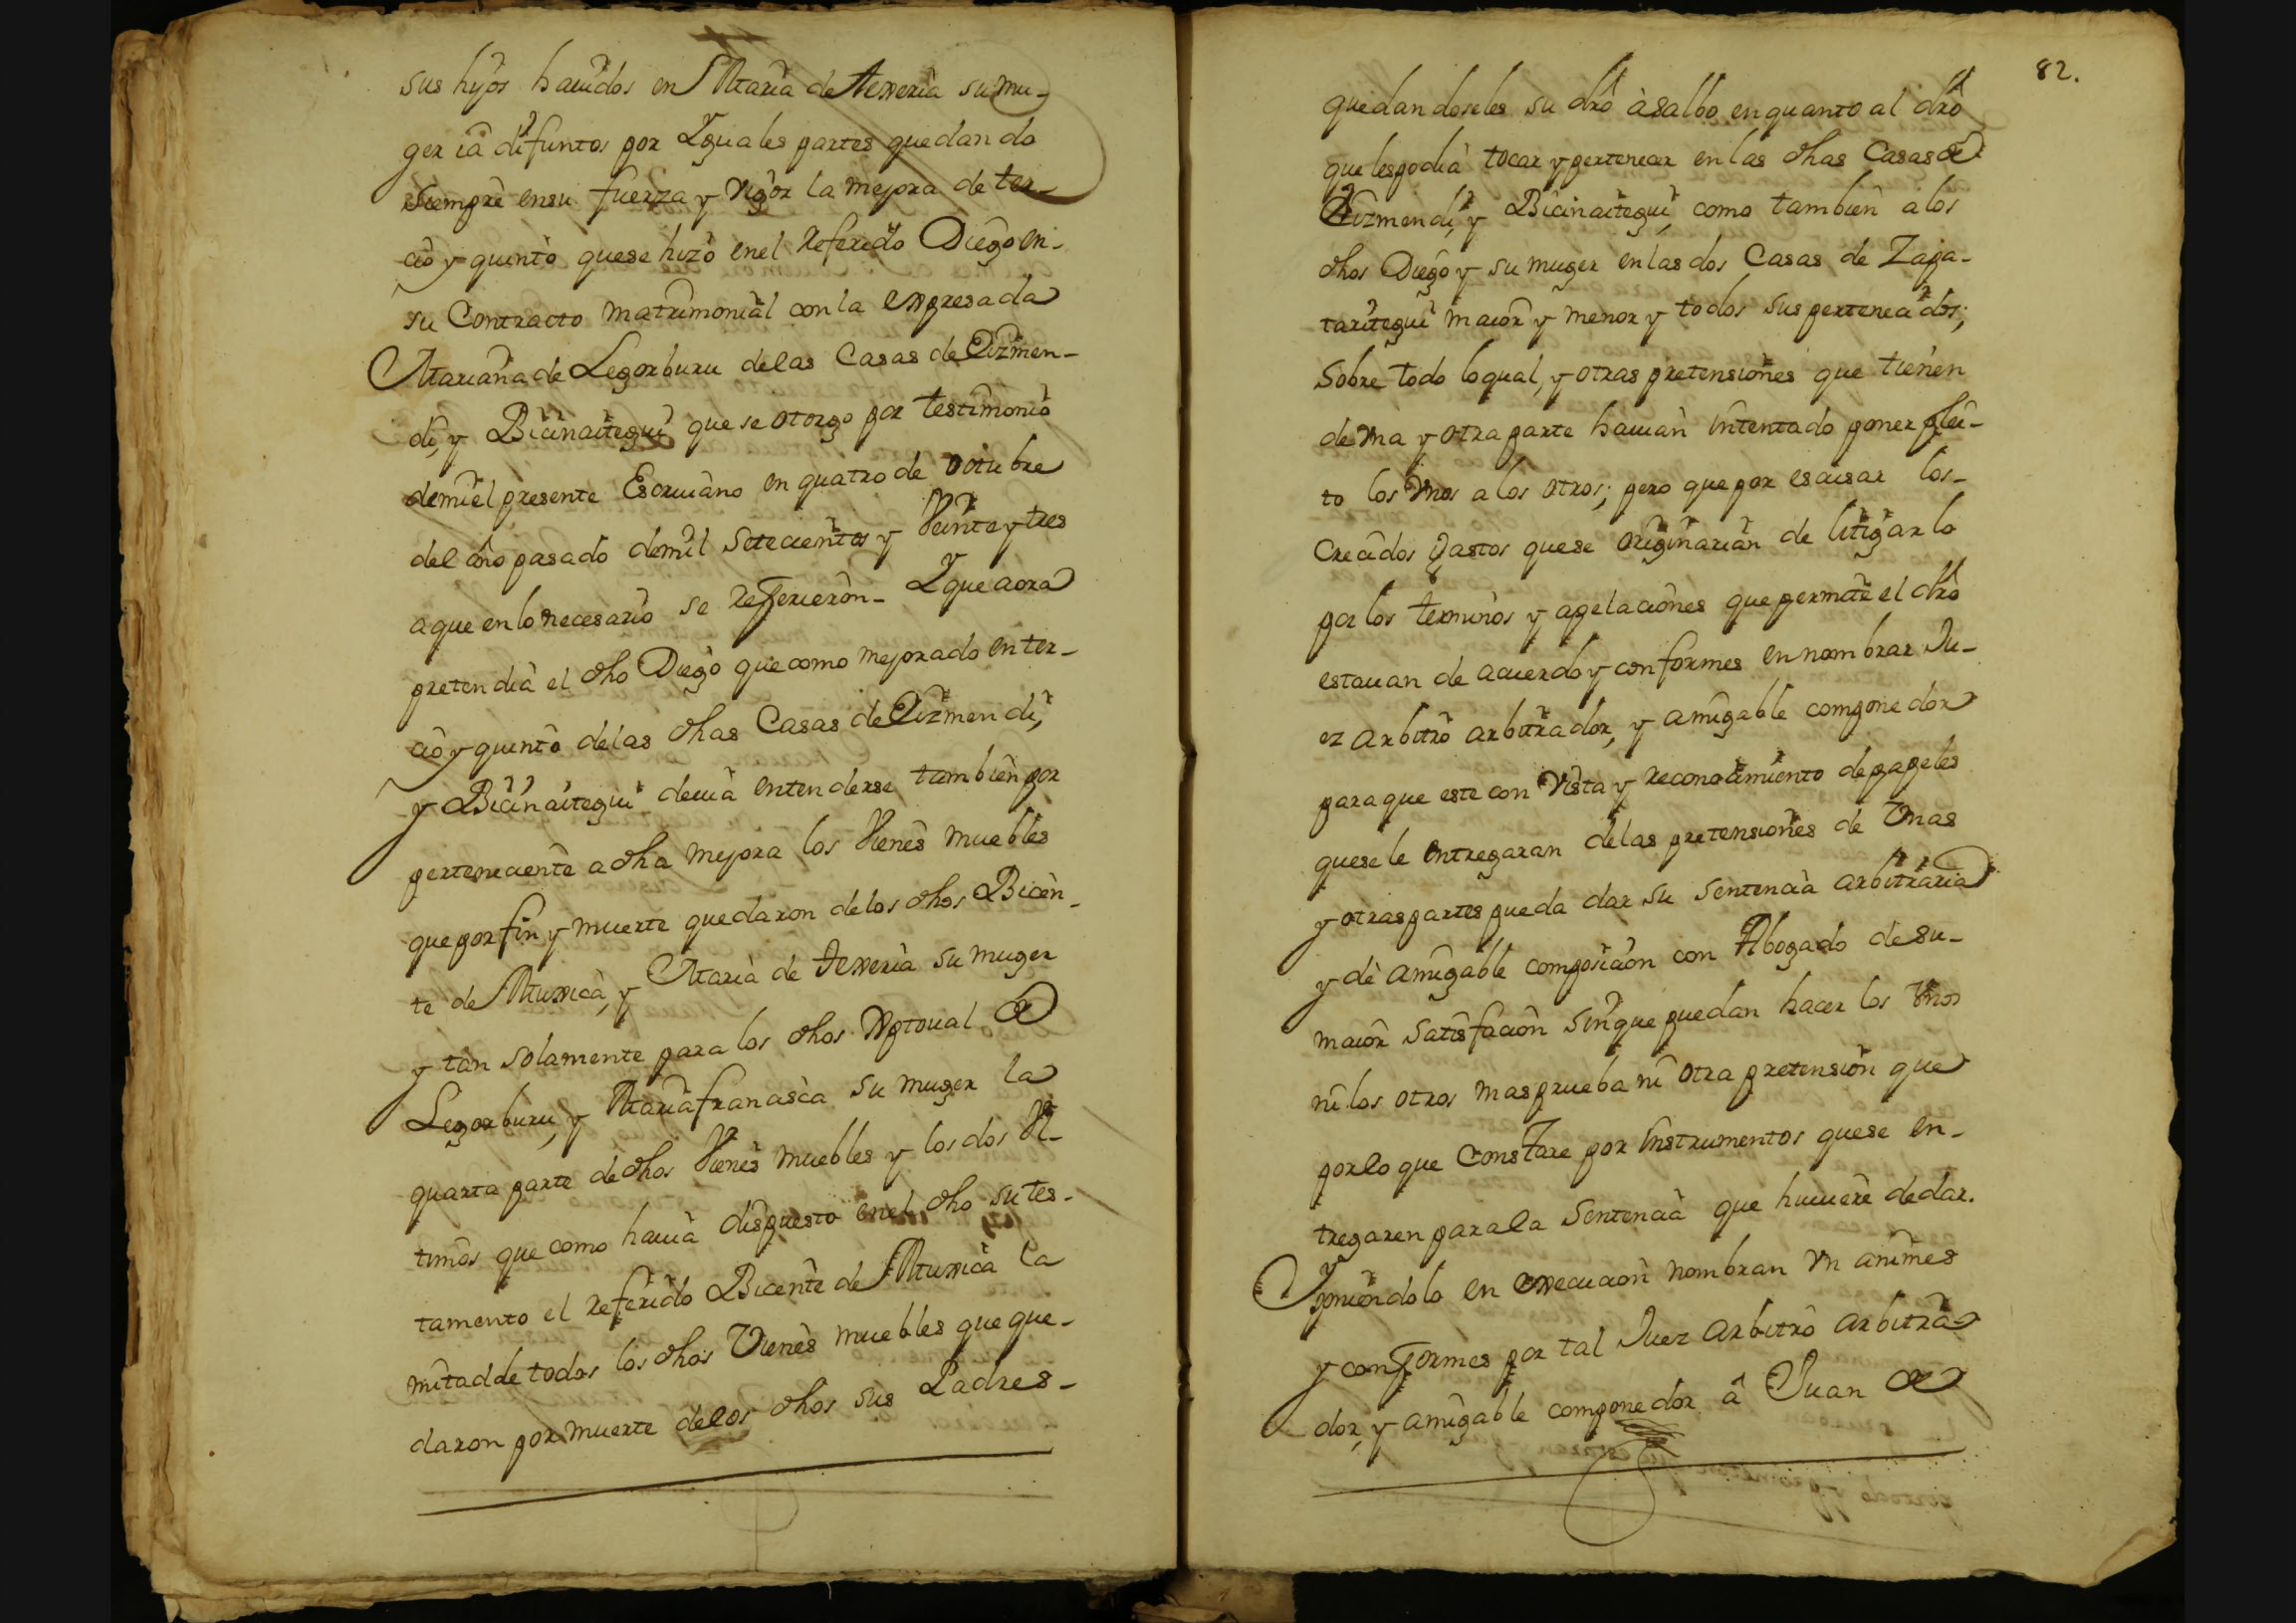 sus hijos hauidos en Maria de Texeria su mu-
ger ia difuntos por Yguales partes quedando
siempre en su fuerza y vigor la mejora de ter-
cio y quinto que se hizo en el referido Diego en-
su Contracto matrimonial con la expresada
Mariana de Legorburu de las Casas de Oizmen-
di, y Bicinaitegui que se otorgo por testimonio
de mi el presente Escriuano en quatro de octubre
del año pasado de mil setecientos y Veinte y tres
a que en lo necesario se refirieron- Y que aora
pretendia el dho Diego que como mejorado en ter-
cio y quinto de las dhas Casas de Oizmendi,
y Bicinaitegui deuia entenderse tambien por
perteneciente a dha mejora los Vienes muebles
que por fin y muerte quedaron de los dhos Bicen-
te de Muxica, y Maria de Texeria su muger
y tan solamente para los dhos Xptoual de
Legorburu, y Maria francisca su muger la
quarta parte de dhos Vienes muebles y los dos Vl-
timos que como hauia dispuesto en el dho su tes-
tamento el referido Bicente de Muxica la
mitad de todos los dhos Vienes muebles que que-
daron por muerte de los dhos sus Padres-
82.
quedandoseles su dro à salbo en quanto al dro
que les podia tocar y pertenecer en las dhas Casas de
Oizmendi, y Bicinaitegui, como tambien a los
dhos Diego y su muger en las dos Casas de Zapa-
taritegui maior y menor y todos sus pertenecidos;
sobre todo lo qual, y otras pretensiones que tienen
de vna y otra parte hauian intentado poner plei-
to los vnos a los otros; pero que por escusar los-
crecidos gastos que se originarian de litigarlo
por los terminos y apelaciones que permite el dro
estauan de acuerdo y conformes en nombrar Ju-
ez arbitro arbitrador, y amigable componedor
para que este con vista y reconocimiento de papeles
que se le entregaran de las pretensiones de Vnas
y otras partes pueda dar su sentencia arbitraria
y de amigable composicion con Abogado de su-
maior satisfacion sin que puedan hacer los vnos
ni los otros mas prueba ni otra pretension que
por lo que constare por instrumentos que se en-
tregaren para la sentencia que huuiere de dar.
Y poniendolo en execucion nombran vnanimes
y conformes por tal Juez arbitro arbitra-
dor, y amigable componedor â Juan de